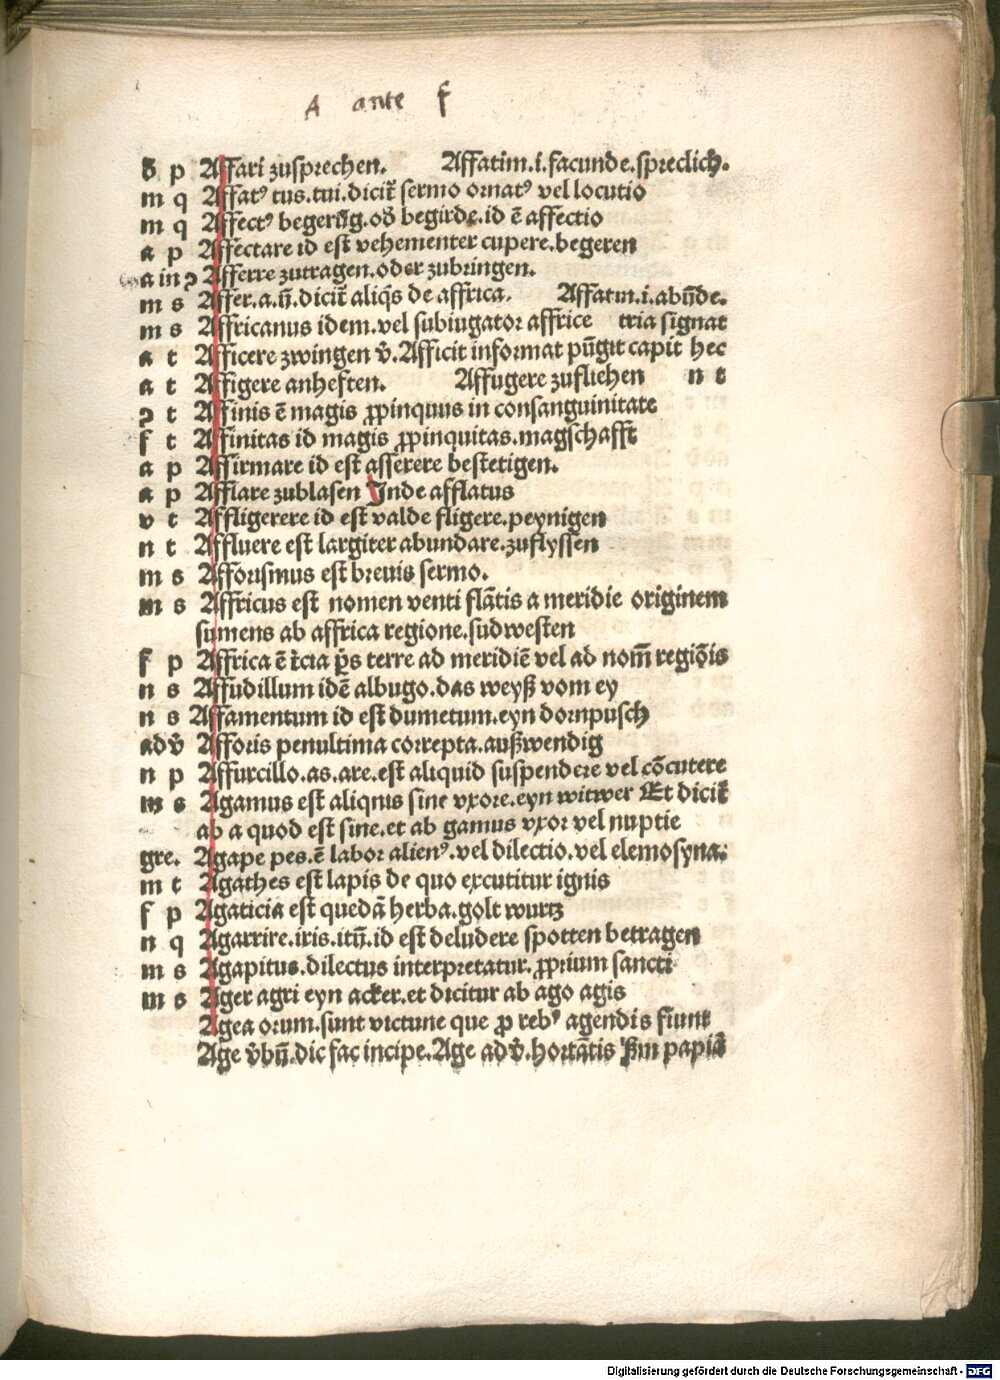 A ante f
đ p Affari zusprechen. Affatim.i.facunde.spreclich.
m q Affatꝰ tus.tui.dicit̃ sermo ornatꝰ vel locutio
m q Affectꝰ begerūg.od̛ begirde.id ē affectio
a p Affectare id est vehementer cupere.begeren
a in ꝛ Afferre zutragen.oder zubringen.
m s Affer.a.ū.dicit̃ aliq̄s de affrica. Affatin.i.abūde.
m s Affricanus idem.vel subiugator affrice tria signat
a t Afficere zwingen v̛̄.Afficit informat pūgit capit hec
a t Affigere anheften. Affugere zufliehen n t
ꝛ t Affinis ē magis ꝓpinquus in consanguinitate
f t Affinitas id magis ꝓpinquitas.magschafft
a p Affirmare id est asserere bestetigen.
a p Afflare zublasen Inde afflatus
v t Affligerere id est valde fligere.peynigen
n t Affluere est largiter abundare.zuflyssen
m s Afforismus est breuis sermo.
m s Affricus est nomen venti flātis a meridie originem
sumens ab affrica regione.sudwesten
f p Affrica ē t̛cia p̄s terre ad meridiē vel ad nom̄ regiōis
n s Affudillum idē albugo.das weyß vom ey
n s Affamentum id est dumetum.eyn dornpusch
adv̛ Afforis penultima correpta.außwendig
n p Affurcillo.as.are.est aliquid suspendere vel cōcutere
m s Agamus est aliquis sine vxore.eyn witwer Et dicit̃
ab a quod est sine.et ab gamus vxor vel nuptie
gre. Agape pes.ē labor alienꝰ.vel dilectio.vel elemosyna.
m t Agathes est lapis de quo excutitur ignis
f p Agaticia est quedā herba.golt wurtz
n q Agarrire.iris.itū.id est deludere spotten betragen
m s Agapitus.dilectus interpretatur.ꝓprium sancti
m s Ager agri eyn acker.et dicitur ab ago agis
Agea orum.sunt victune que ꝓ rebꝰ agendis fiunt
Age v̛bū.dic fac incipe.Age adv̛.hortātis ẜm papiā
Digitalisierung gefördert durch die Deutsche Forschungsgemeinschaft - DFG